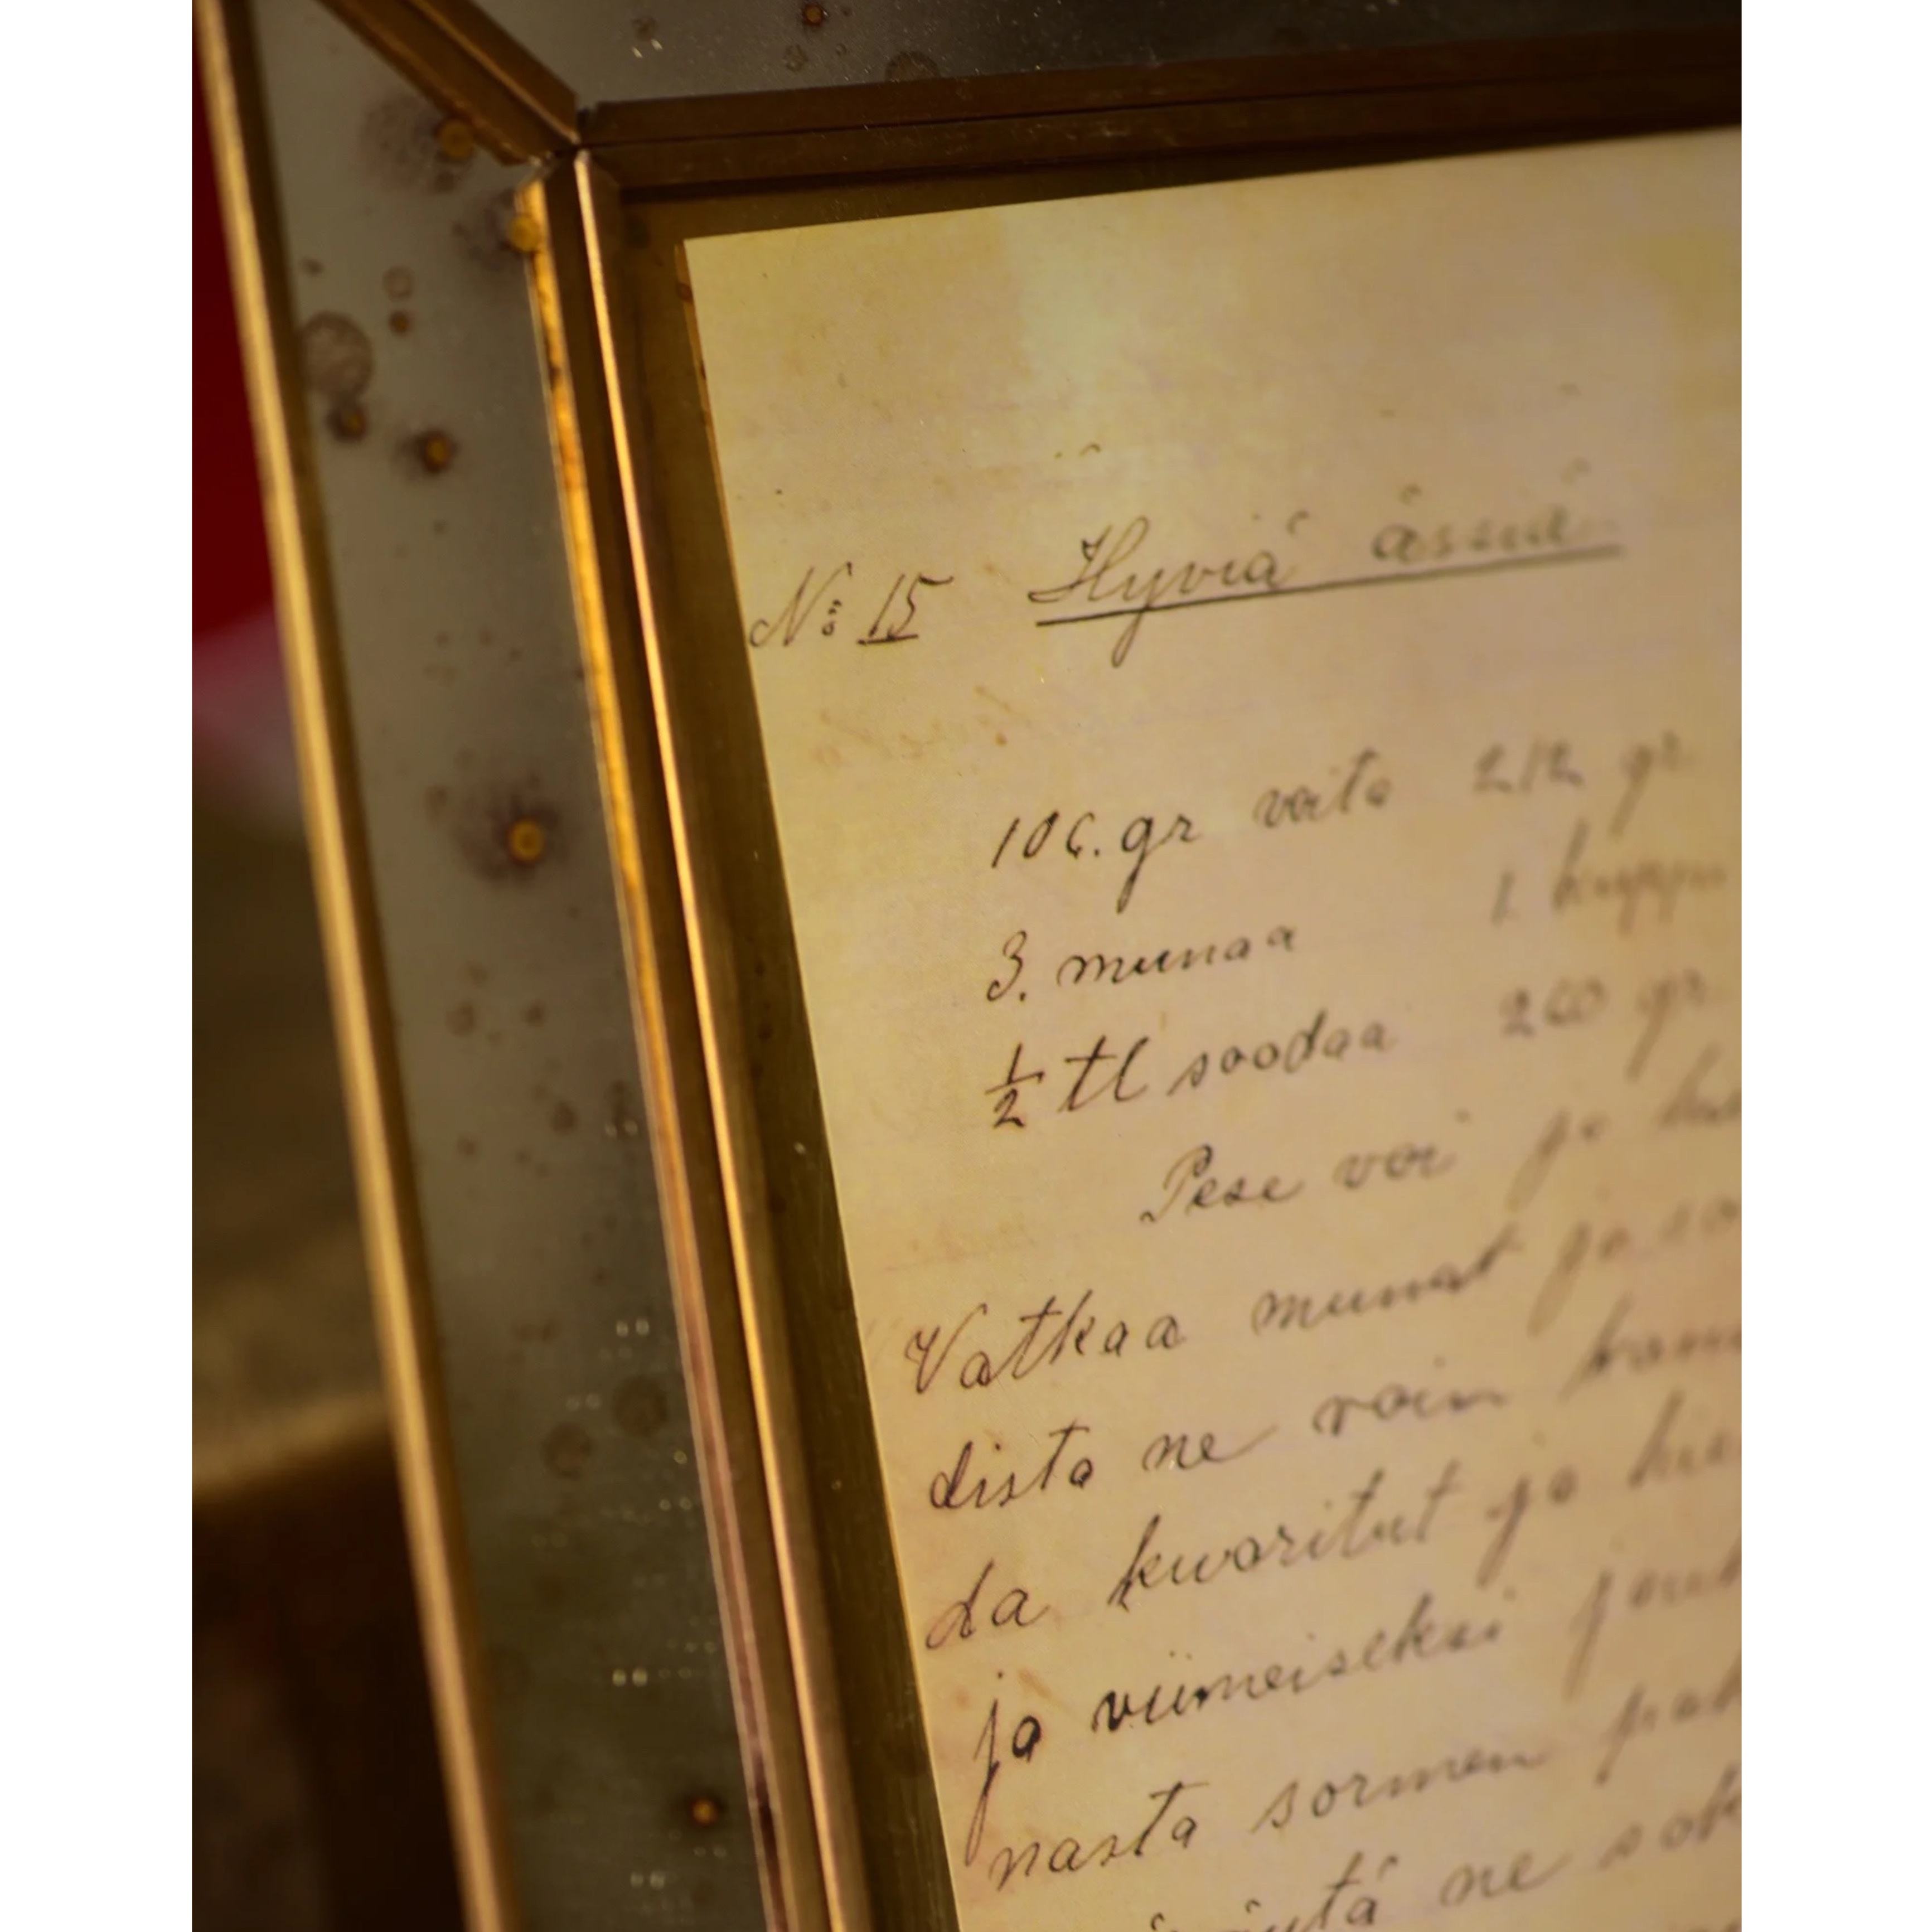 No 15 Hyviä ässiä
106. gr voita 212 gr
3. munaa 1. kuppi
½ tl soodaa 260 gr.
Pese voi ja
Vatkaa munat ja
dista ne voin
da kuoritut ja
ja viimeiseksi
nasta sormen
ne